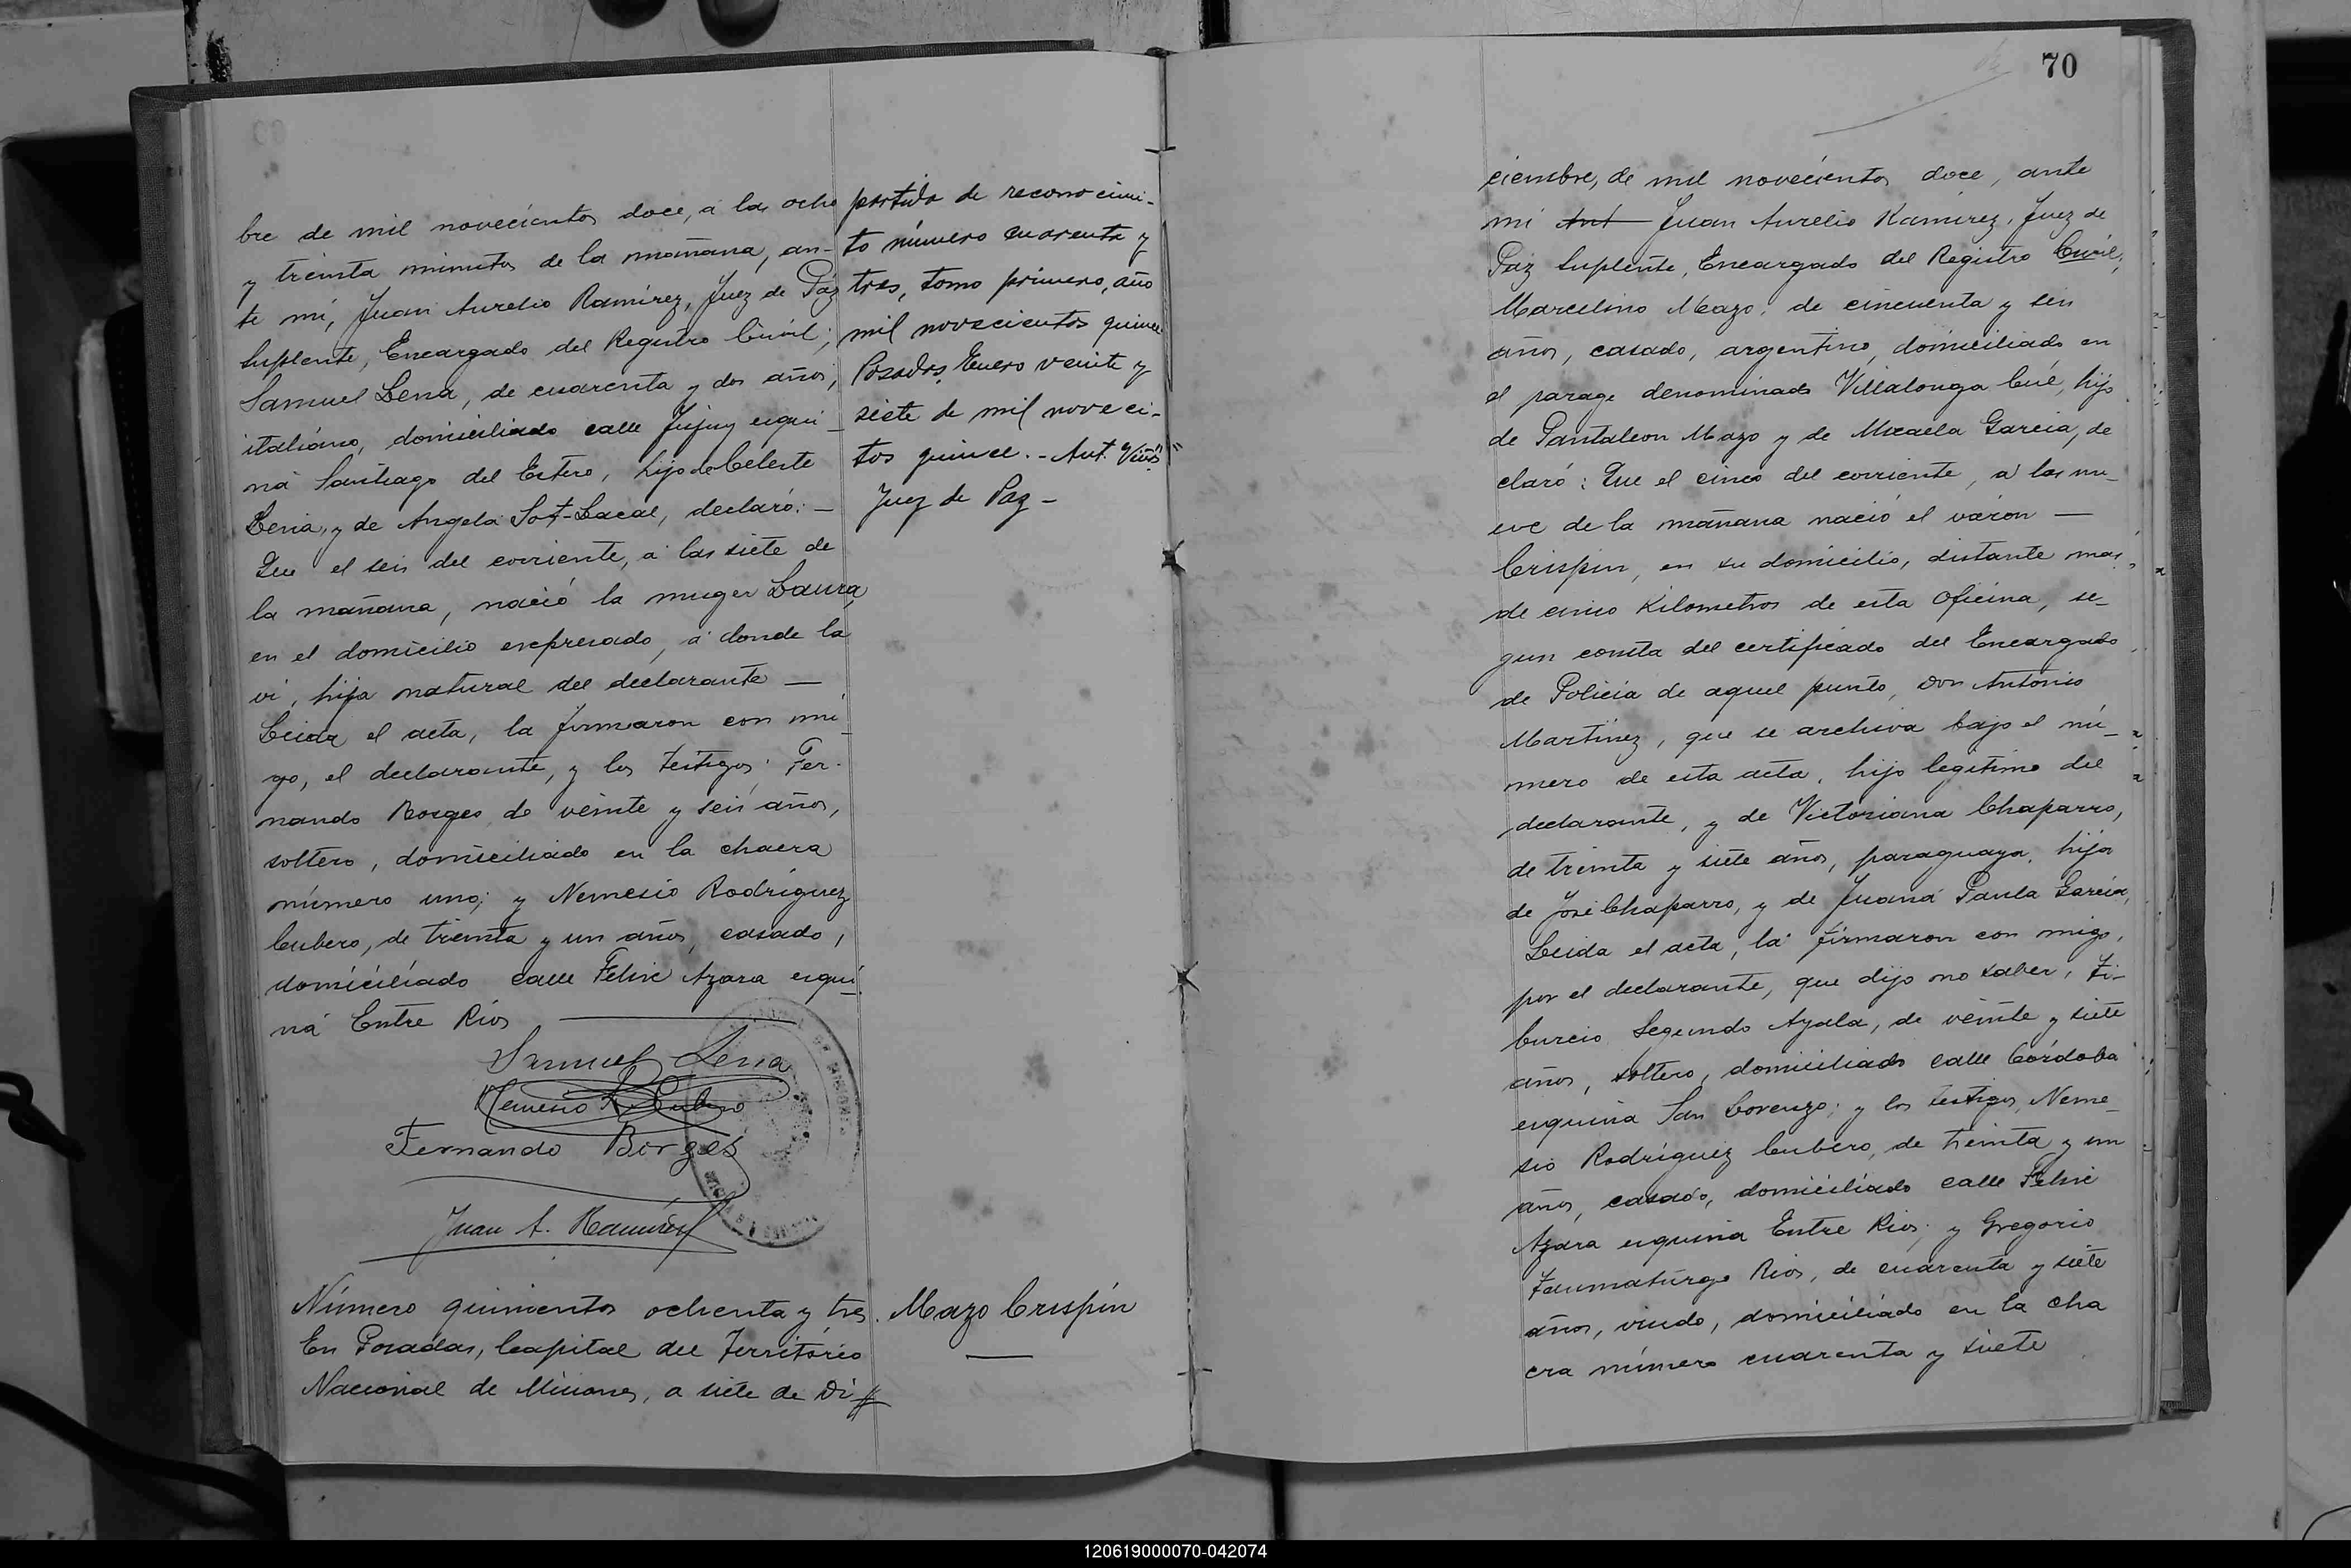 bre de mil novecientos doce, á las ocho
y treinta minutos de la mañana, an-
te mi, Juan Aurelio Ramírez, Juez de Paz
Suplente, Encargado del Registro Civil;
Samuel Lena, de cuarenta y dos años,
italiano, domiciliado calle Jujuy esqui-
na Santiago del Estero, hijo de Celeste
Lena, y de Angela declaró: —
Que el seis del corriente, a las siete de
la mañana, nació la muger Laura,
en el domicilio expresado, á donde la
vi, hija natural del declarante —
Leida el acta, la firmaron con mi-
go, el declarante, y los testigos: Fer-
nando Borges de veinte y seis años,
soltero, domiciliado en la chacra
número uno; y Nemesio Rodríguez
Cubero, de treinta y un años, casado,
domiciliado calle Felix Azara esqui-
na Entre Rios
Samuel Lena
Nemesio R. Cubero
Fernando Borges
Juan A. Ramírez
Número quinientos ochenta y tres.
En Posadas, Capital del Territorio
Nacional de Misiones, a siete de Di-
partida de reconocimi-
to número cuarenta y
tres, tomo primero, año
mil novecientos quince
Posadas, Enero veinte y
siete de mil noveci-
tos quince. - Ant.
Juez de Paz -
Mazo Crispín
70
ciembre, de mil novecientos doce, ante
mi Ant Juan Aurelio Ramirez, Juez de
Paz Suplente, Encargado del Registro Civil;
Marcelino Mazo, de cincuenta y seis
años, casado, argentino, domiciliado en
el parage denominado Villalonga Cué, hijo
de Pantaleon Mazo y de Micaela Garcia, de
claró: Que el cinco del corriente, a las nu-
eve de la mañana nació el váron —
Crispin, en su domicilio, distante mas
de cinco Kilometros de esta Oficina, se-
gun consta del certificado del Encargado
de Policia de aquel punto, Don Antonio
Martínez, que se archiva bajo el nú-
mero de esta acta, hijo legítimo del
declarante, y de Victoriana Chaparro,
de treinta y siete años, paraguaya, hija
de José Chaparro, y de Juana Paula Garcia,
Leida el acta, la firmaron con migo,
por el declarante, que dijo no saber, Ti-
burcio Segundo Ayala, de veinte y siete
años, soltero, domiciliado calle Córdoba
esquina San Lorenzo; y los testigos, Neme-
sio Rodríguez Cubero, de treinta y un
años, casado, domiciliado calle Felix
Azara esquina Entre Rios; y Gregorio
Taumaturgo Rios, de cuarenta y siete
años, viudo, domiciliado en la cha
cra número cuarenta y siete
120619000070-042074